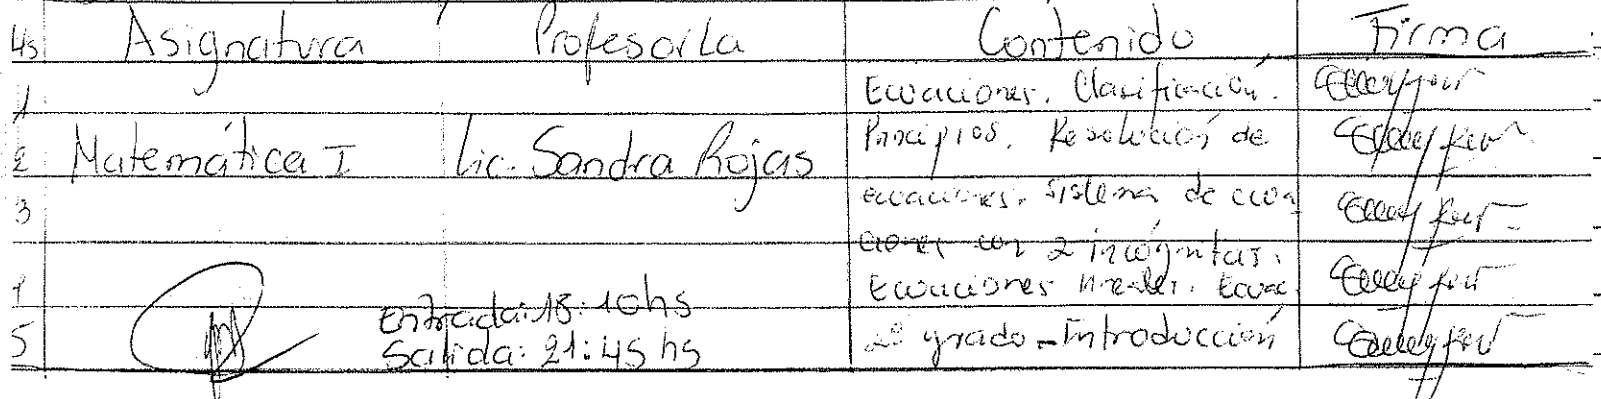 Hs Asignatura Profesor/a Contenido Firma
1 Ecuaciones. Clasificación.
2 Matemática I Lic. Sandra Rojas Principios. Resolución de
3 ecuaciones. Sistema de ecua
ciones con 2 incógnitas.
Ecuaciones lineales. Ecuac.
Entrada: 18:10hs
5 2º grado - Introducción
Salida: 21:45 hs